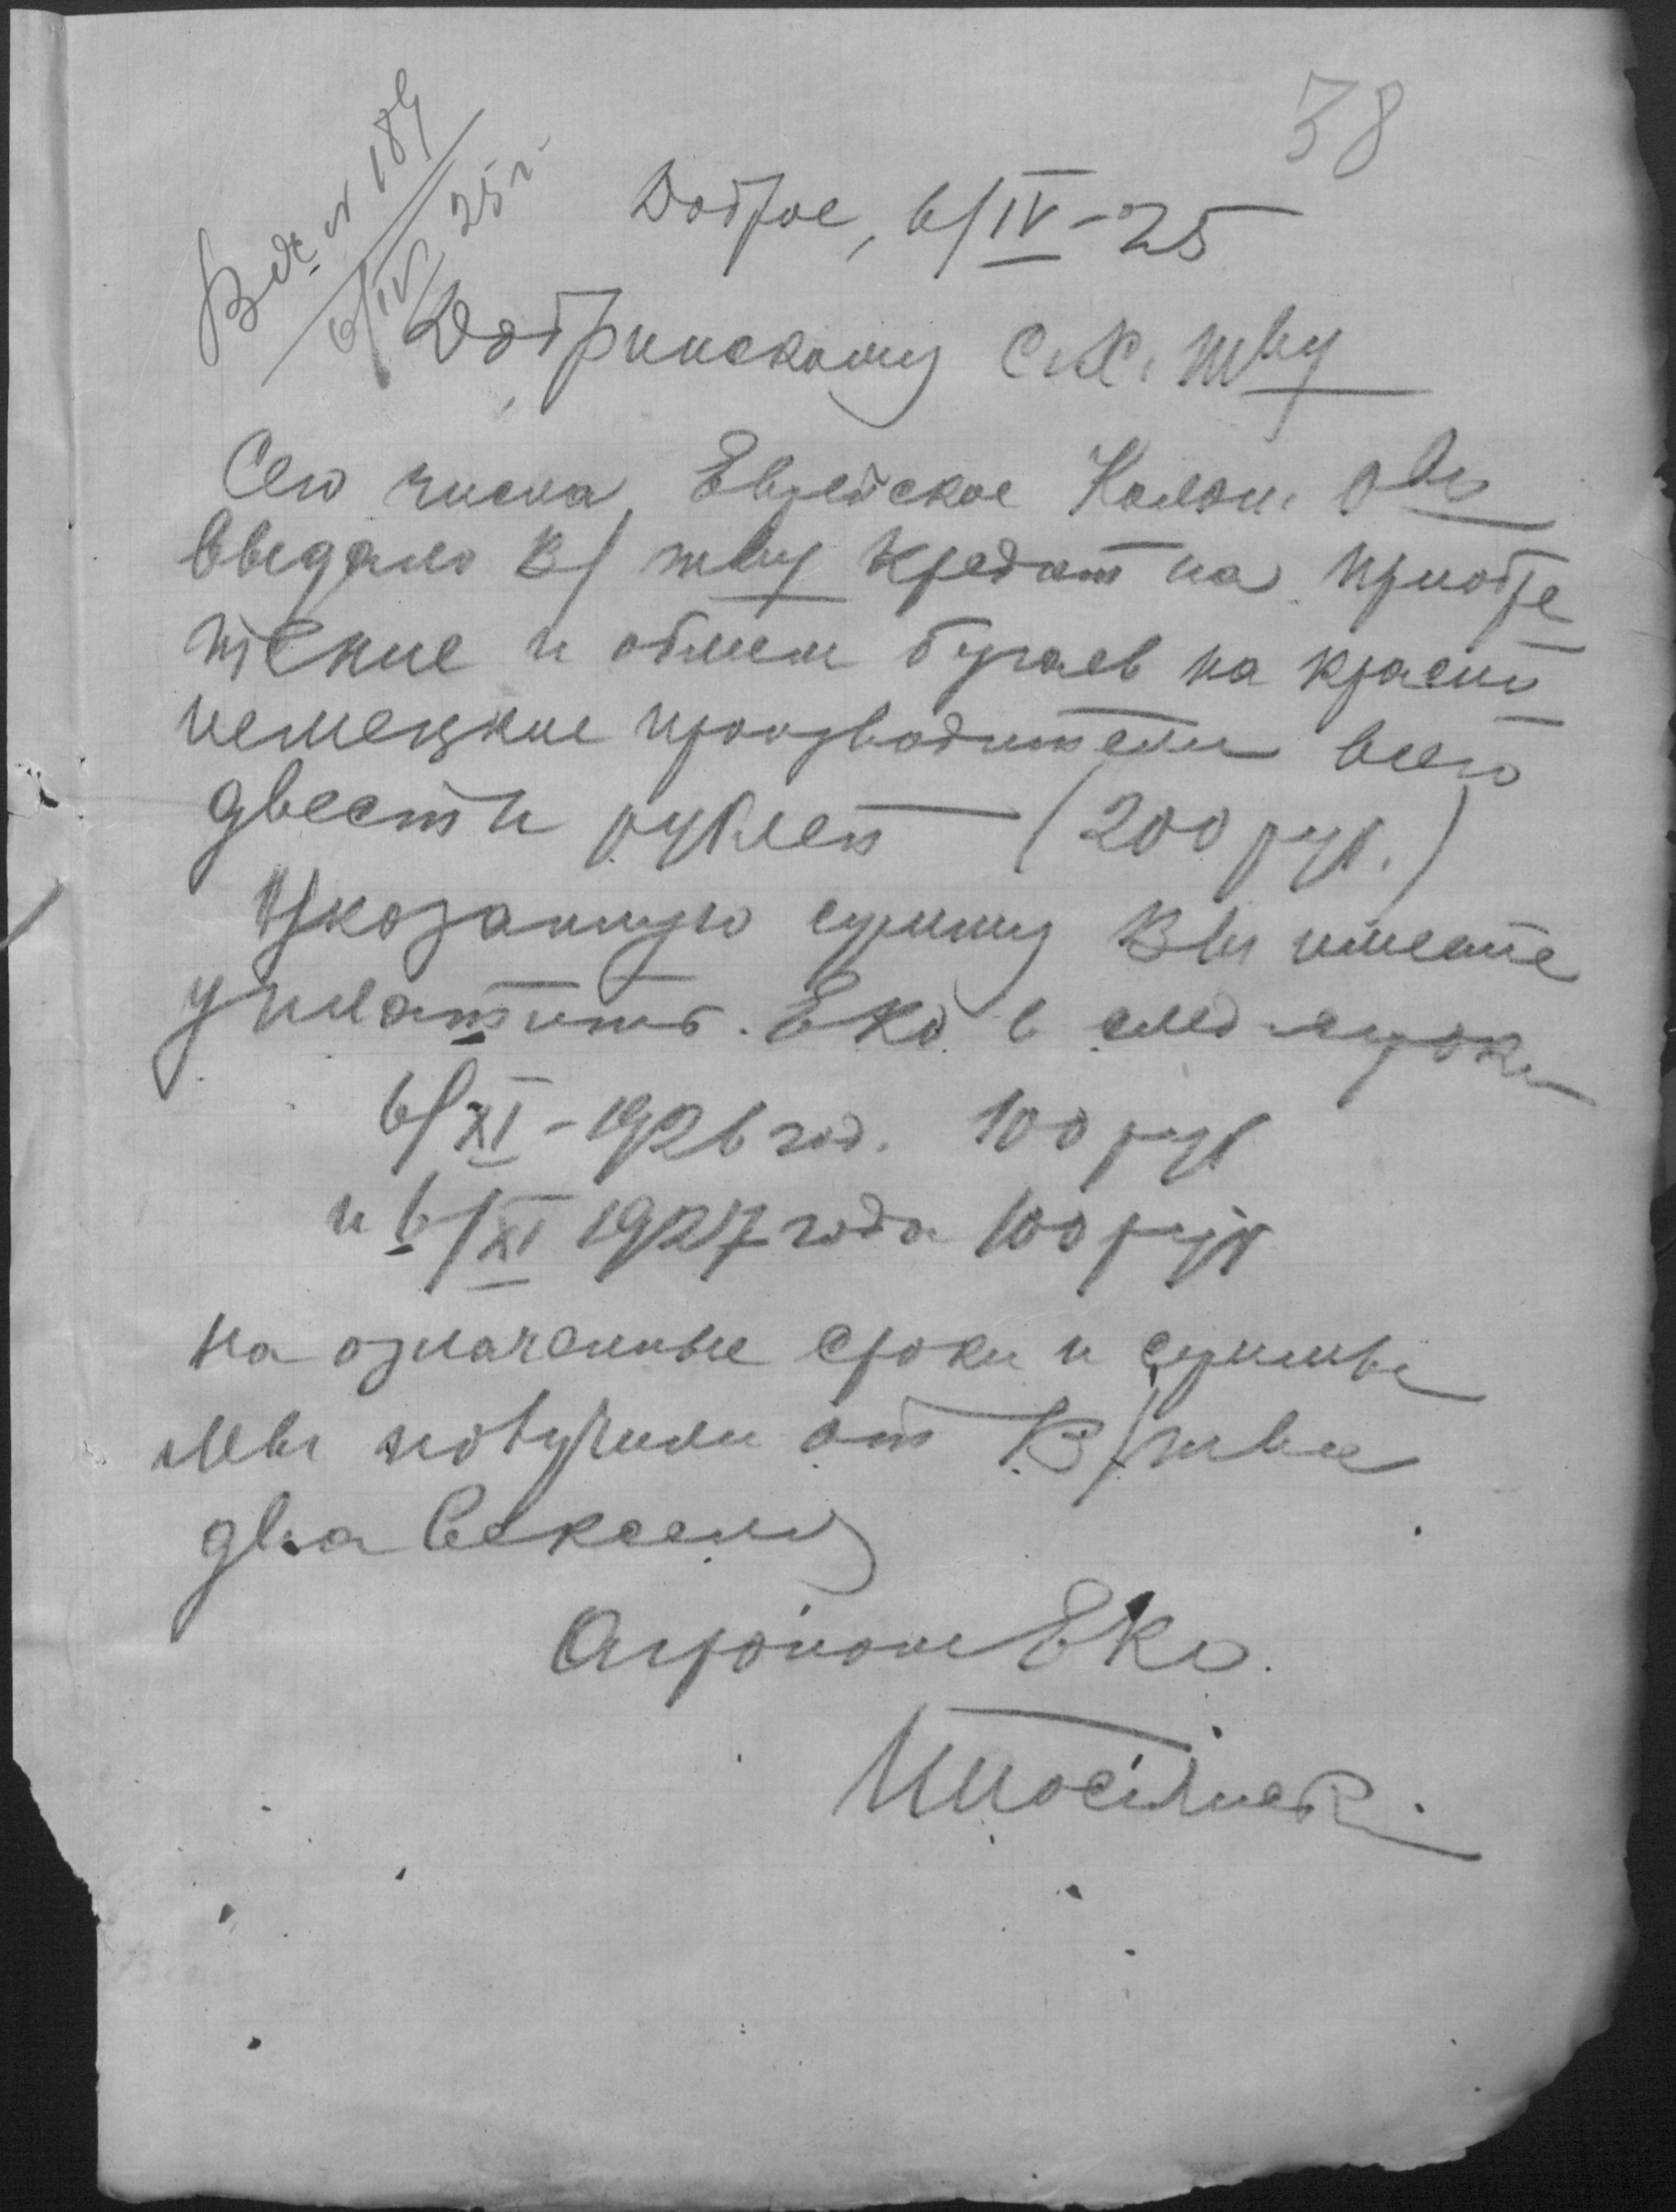 38
Вх. № 189
6/IV 25 г.
Доброе, 6/IV-25
Добринскому С.Х. тву
Сего числа Еврейское Колон. Ово
выдало В/тву кредит на приобре
тение и обмен бугаев на красно
немецкие производители всего
двести рублей — (200 руб.)
Указанную сумму Вы имеете
уплатить ЕКО в след сроки
6/XI-1926 год. 100 руб
и 6/XI 1927 года 100 руб
на означенные сроки и суммы
мы получили от В/тва
два векселя
Агроном ЕКО.